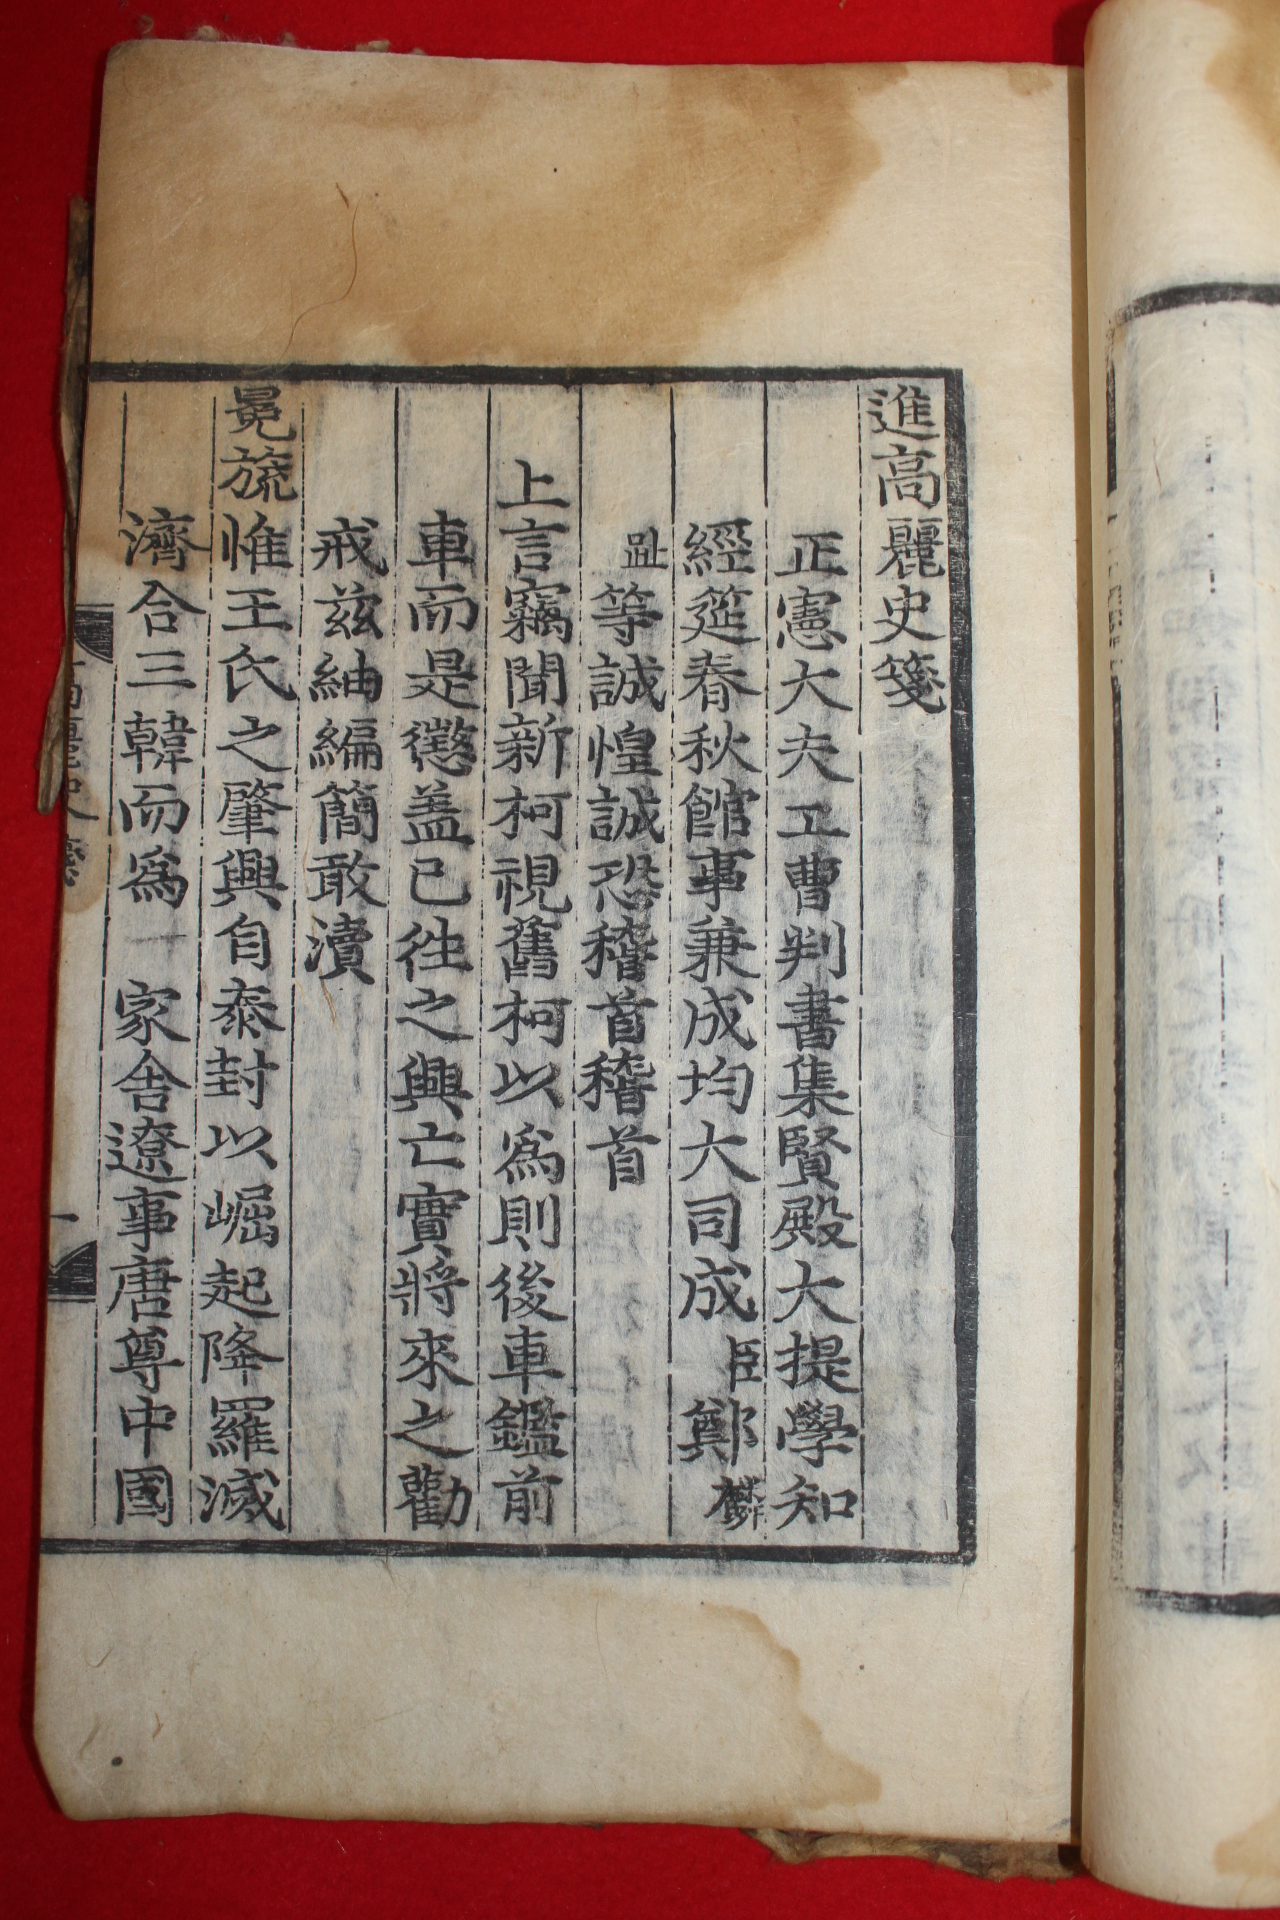 進高麗史箋
正憲大夫工曹判書集賢殿大提學知
經筵春秋館事兼成均大司成臣鄭麟
趾等誠惶誠恐稽首稽首
上言竊聞新柯視舊柯以爲則後車鑑前
車而是懲盖已往之興亡實將來之勸
戒兹紬編簡敢瀆
冕旒惟王氏之肇興自泰封以崛起降羅滅
濟合三韓而爲一家舍遼事唐尊中國
高麗史箋
一